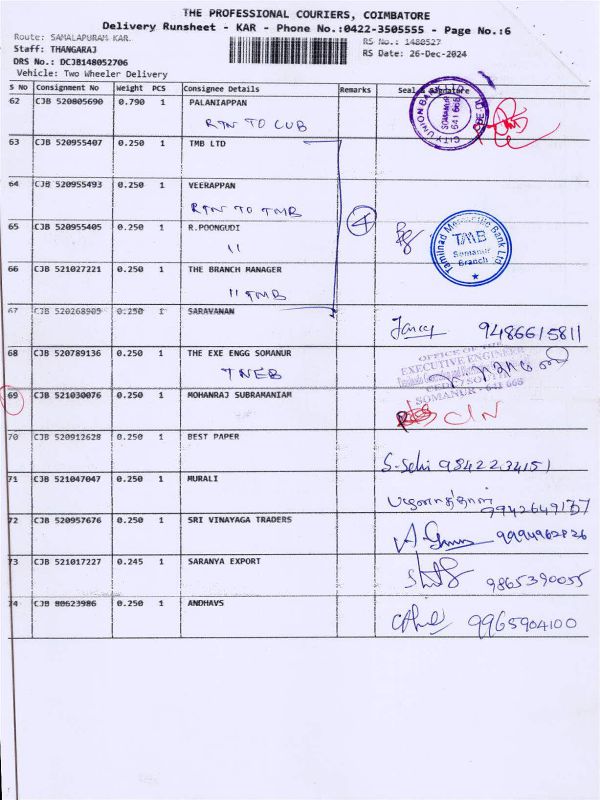 THE PROFESSIONAL COURIERS, COIMBATORE
Delivery Runsheet - KAR - Phone No.:0422-3505555 - Page No.:6
Route: SAMALAPURAM KAR.
RS No.: 1480527
Staff: THANGARAJ
RS Date: 26-Dec-2024
DRS No.: DCJB148052706
Vehicle: Two Wheeler Delivery
S No Consignment No Weight PCS Consignee Details Remarks Seal & Signature
62 CJB 520805690 0.790 1 PALANIAPPAN
RTN TO CUB
CITY UNION BANK
SOMANUR
641 668
63 CJB 520955407 0.250 1 TMB LTD
64 CJB 520955493 0.250 1 VEERAPPAN
RTN TO TMB
4
65 CJB 520955405 0.250 1 R.POONGUDI
11
Tamilnad Mercantile Bank Ltd
TMB
Somanur
Branch
66 CJB 521027221 0.250 1 THE BRANCH MANAGER
11 TMB
67 CJB 520268905 0.250 1 SARAVANAN
9486615811
68 CJB 520789136 0.250 1 THE EXE ENGG SOMANUR
TNEB
OFFICE OF THE
EXECUTIVE ENGINEER
SOMANUR - 641 668
69 CJB 521030076 0.250 1 MOHANRAJ SUBRAMANIAM
70 CJB 520912628 0.250 1 BEST PAPER
98422 34151
71 CJB 521047047 0.250 1 MURALI
9942649137
72 CJB 520957676 0.250 1 SRI VINAYAGA TRADERS
9994962826
73 CJB 521017227 0.245 1 SARANYA EXPORT
9865390055
74 CJB 80623986 0.250 1 ANDHAVS
9965904100